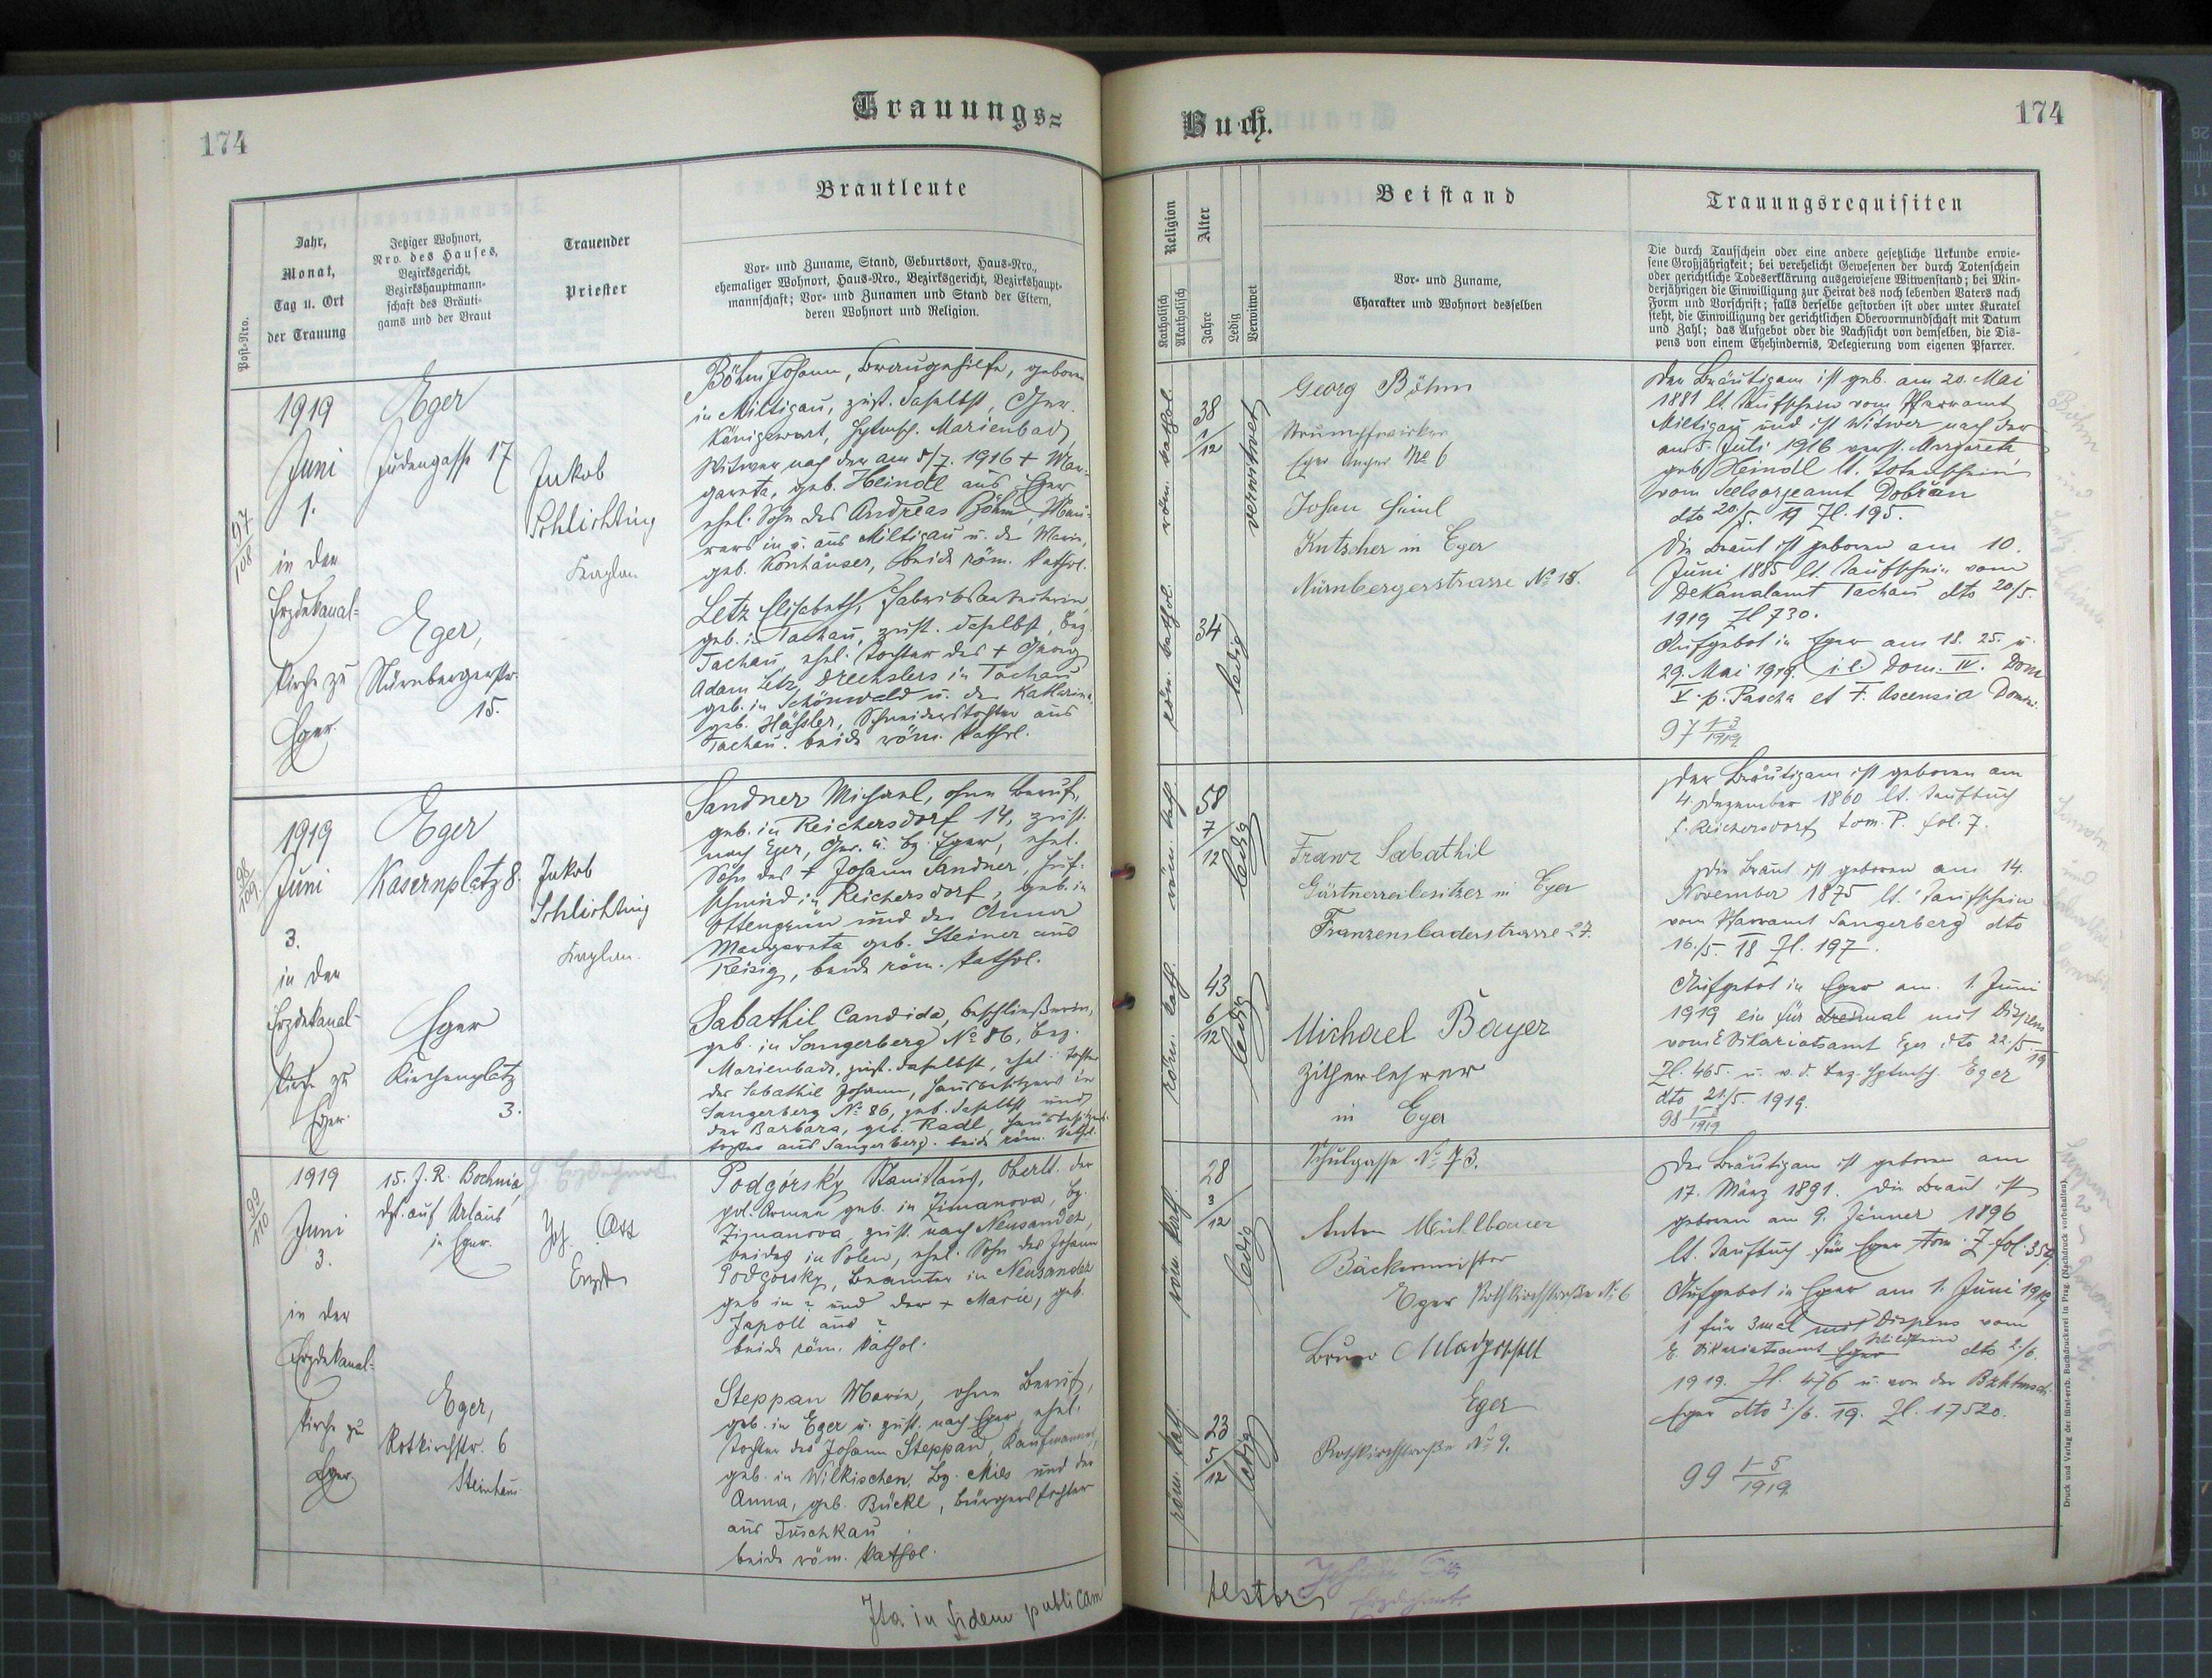 174
Trauungs=
Post-Nro.
Jahr,
Monat,
Tag u. Ort
der Trauung
Jetziger Wohnort,
Nro. des Hauses,
Bezirksgericht,
Bezirkshauptmann-
schaft des Bräuti-
gams und der Braut
Trauender
Priester
Brautleute
Vor- und Zuname, Stand, Geburtsort, Haus-Nro.,
ehemaliger Wohnort, Haus-Nro., Bezirksgericht, Bezirkshaupt-
mannschaft; Vor- und Zunamen und Stand der Eltern,
deren Wohnort und Religion.
97
108
1919
Juni
1.
in der
Erzdekanal-
kirche zu
Eger.
Eger
Judengasse 17
Eger,
Nürnbergerstr.
15.
Jakob
Schlichting
Kaplan
Böhm Johann, Braugehilfe, geboren
in Miltigau, zust. daselbst, Ger.
Königswart, Hptmsch. Marienbad,
Witwer nach der am 5/7. 1916 + Mar-
gareta, geb. Heindl aus Eger
ehel. Sohn des Andreas Böhm, Mau-
rers in u. aus Miltigau u. der Marie,
geb. Konhäuser, beide röm. kathol.
Letz Elisabeth, Fabriksarbeiterin,
geb. in Tachau, zust. daselbst, Bez.
Tachau, ehel. Tochter des + Georg
Adam Letz, Drechslers in Tachau
geb. in Schönwald u. der Katharina
geb. Häßler, Schneiderstochter aus
Tachau. beide röm. kathol.
98
109
1919
Juni
3.
in der
Erzdekanal-
kirche zu
Eger.
Eger
Kasernplatz 8.
Eger
Kirchenplatz
3.
Jakob
Schlichting
Kaplan.
Sandner Michael, ohne Beruf,
geb. in Reichersdorf 14, zust.
nach Eger, Ger. u. Bz. Eger, ehel.
Sohn des + Johann Sandner, Huf-
schmied in Reichersdorf, geb. in
Ottengrün und der Anna
Margareta geb. Steiner aus
Reisig, beide röm. kathol.
Sabathil Candida, Beschließerin,
geb. in Sangerberg No 86, Bez.
Marienbad, zust. daselbst, ehel. Tochter
des Sabathil Johann, Hausbesitzers in
Sangerberg No 86, geb. daselbst und
der Barbara, geb. Radl, Hausbesitzers-
tochter aus Sangerberg. beide röm. kathol.
99
110
1919
Juni
3.
in der
Erzdekanal-
kirche zu
Eger
15. J. R. Bochnia,
dzt. auf Urlaub
in Eger.
Eger,
Rotkirchstr. 6
Joh. Öss
Erzd
Podgórsky Stanislaus, Oberlt. der
pol. Armee geb. in Zimanova, Bz.
Zimanova, zust. nach Neusandez,
beides in Polen, ehel. Sohn des Johann
Podgórsky, Beamter in Neusandez
geb in ? und der + Marie, geb.
Japoll aus ?
beide röm. kathol.
Steppan Marie, ohne Beruf,
geb. in Eger u. zust. nach Eger, ehel.
Tochter des Johann Steppan, Kaufmannes,
geb. in Wilkischen, Bz. Mies und der
Anna, geb. Bückl, Bürgerstochter
aus Tuschkau
beide röm. kathol.
Ita in fidem publicam
Buch.
174
Religion
Katholisch
Akatholisch
Alter
Jahre
Ledig
Verwitwet
Beistand
Vor- und Zuname,
Charakter und Wohnort desselben
Trauungsrequisiten
Die durch Taufschein oder eine andere gesetzliche Urkunde erwie-
sene Großjährigkeit; bei verehelicht Gewesenen der durch Totenschein
oder gerichtliche Todeserklärung ausgewiesene Witwenstand; bei Min-
derjährigen die Einwilligung zur Heirat des noch lebenden Vaters nach
Form und Vorschrift; falls derselbe gestorben ist oder unter Kuratel
steht, die Einwilligung der gerichtlichen Obervormundschaft mit Datum
und Zahl; das Aufgebot oder die Nachsicht von demselben, die Dis-
pens von einem Ehehindernis, Delegierung vom eigenen Pfarrer.
röm. kathol.
38
1/12
verwitwet
röm. kathol.
34
ledig
Georg Böhm
Strumpfwirker
Eger Anger No 6
Johan Heinl
Kutscher in Eger
Nürnbergerstrasse No 18.
Der Bräutigam ist geb. am 20. Mai
1881 lt. Taufschein vom Pfarramt
Miltigau und ist Witwer nach der
am 5. Juli 1916 verst. Margareta
geb. Heindl lt. Totenschein
vom Seelsorgeamt Dobřan
dto 20/5. 19 Zl. 195.
Die Braut ist geboren am 10.
Juni 1885 lt. Taufschein vom
Dekanalamt Tachau dto 20/5.
1919 Zl 730.
Aufgebot in Eger am 18. 25. u.
29. Mai 1919. i. e. Dom. IV. Dom
V. p. Pascha et F. Ascensio Domini.
97 1-3
1919
röm. kath.
58
7/12
ledig
röm. kath.
43
6/12
ledig
Franz Sabathil
Gärtnereibesitzer in Eger
Franzensbaderstrasse 27.
Michael Bayer
Zitherlehrer
in Eger
Schulgasse No 73.
Der Bräutigam ist geboren am
4. Dezember 1860 lt. Taufbuch
f. Reichersdorf tom. P. fol. 7.
Die Braut ist geboren am 14.
November 1875 lt. Taufschein
vom Pfarramt Sangerberg dto
16./5. 18 Zl. 197.
Aufgebot in Eger am 1. Juni
1919 ein für dreimal mit Dispens
vom E Vikariatsamt Eger dto 22./5. 19
Zl. 465 u. v. d. Bez. Hptmsch. Eger
dto 21/5. 1919.
98 1-3
1919
röm. kath.
28
3/12
ledig
röm. kath.
23
5/12
ledig
Anton Mühlbauer
Bäckermeister
Eger Rothkirchstraße No 6
Bruno
Eger
Rothkirchstraße No 9.
Der Bräutigam ist geboren am
17. März 1891. Die Braut ist
geboren am 9. Jänner 1896
lt. Taufbuch für Eger tom. Z fol. 354.
Aufgebot in Eger am 1. Juni 1919
1 für 3mal mit Dispens vom
E. Vikariatsamt Eger dto 2/6.
1919. Zl. 476 u. von der Bzkhtmsch.
Eger dto 3./6. 19. Zl. 17520.
99 1-5
1919
Druck und Verlag der fürst-erzb. Buchdruckerei in Prag. (Nachdruck vorbehalten).
testor
Erzdechant.